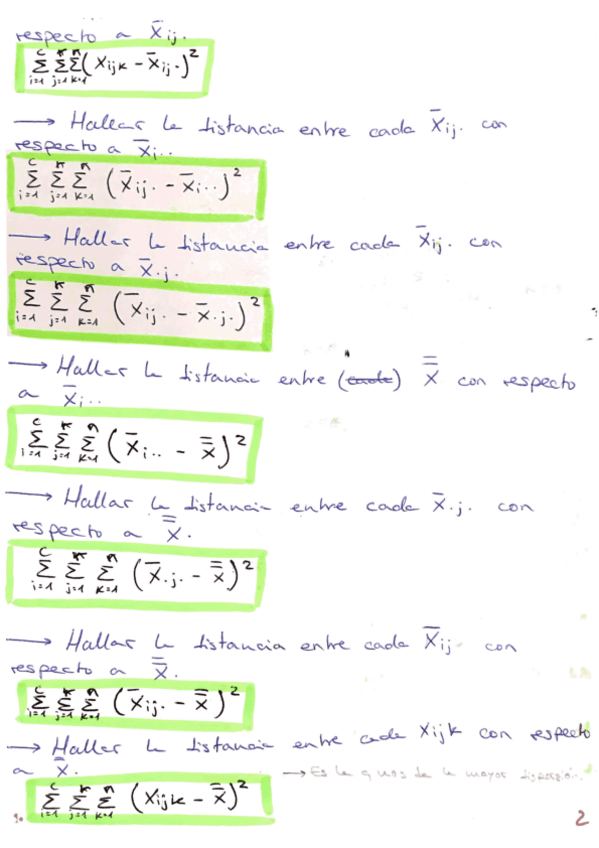 respecto a x̄ij.
Σ(i=1, c) Σ(j=1, r) Σ(k=1, n) (xijk - x̄ij.)²
→ Hallar la distancia entre cada x̄ij. con
respecto a x̄i..
Σ(i=1, c) Σ(j=1, r) Σ(k=1, n) (x̄ij. - x̄i..)²
→ Hallar la distancia entre cada x̄ij. con
respecto a x̄.j.
Σ(i=1, c) Σ(j=1, r) Σ(k=1, n) (x̄ij. - x̄.j.)²
→ Hallar la distancia entre (cada) x̿ con respecto
a x̄i..
Σ(i=1, c) Σ(j=1, r) Σ(k=1, n) (x̄i.. - x̿)²
→ Hallar la distancia entre cada x̄.j. con
respecto a x̿.
Σ(i=1, c) Σ(j=1, r) Σ(k=1, n) (x̄.j. - x̿)²
→ Hallar la distancia entre cada x̄ij con
respecto a x̿.
Σ(i=1, c) Σ(j=1, r) Σ(k=1, n) (x̄ij. - x̿)²
→ Hallar la distancia entre cada xijk con respecto
a x̿.
→ Es la q nos da la mayor dispersión.
Σ(i=1, c) Σ(j=1, r) Σ(k=1, n) (xijk - x̿)²
2